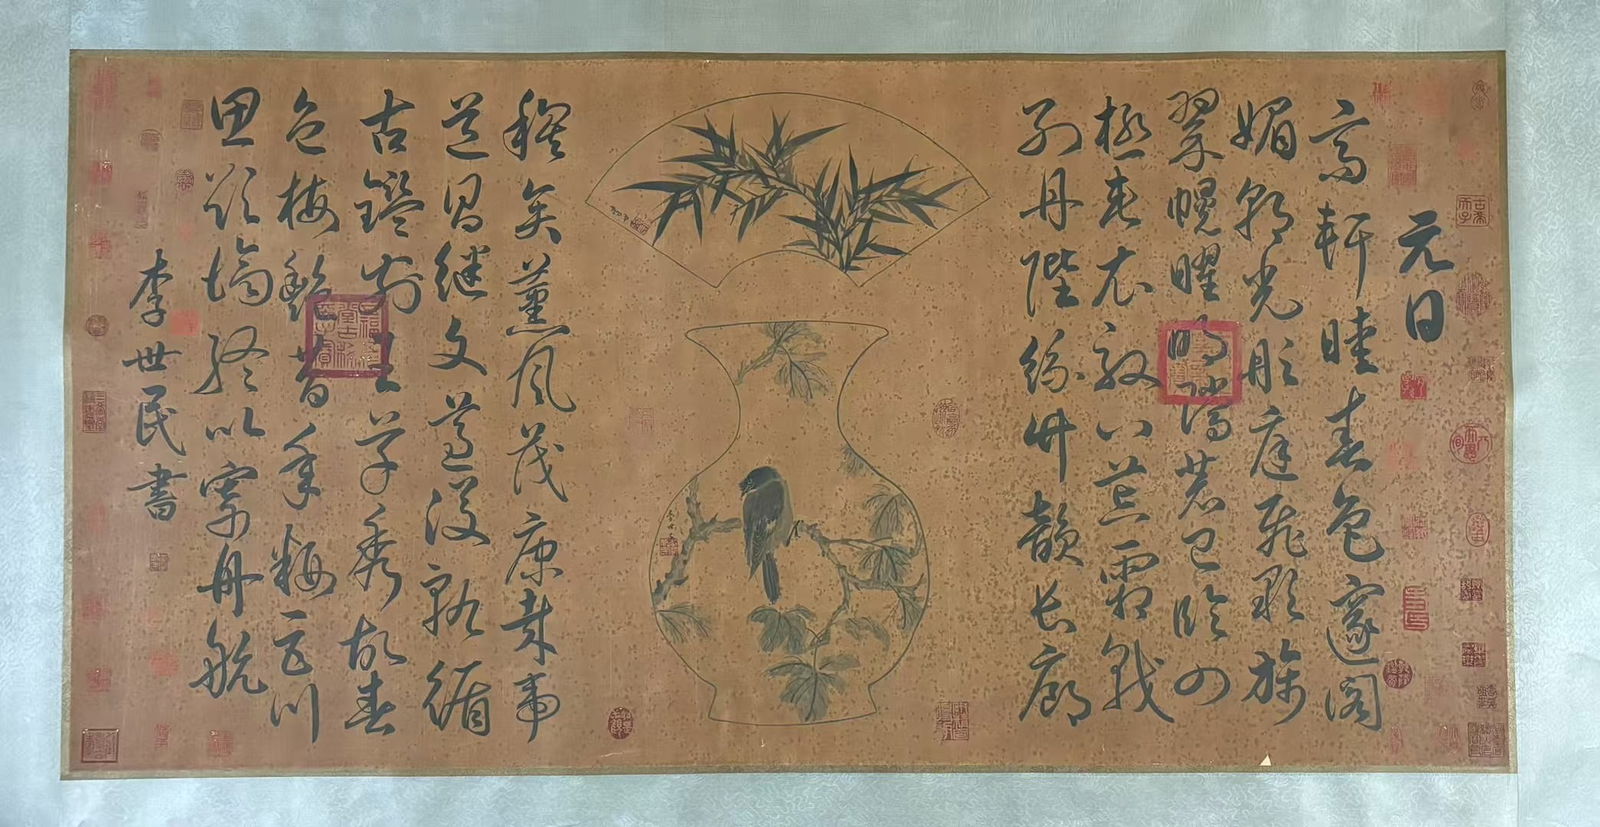 元日
高軒曖春色邃阁
媚朝光彤庭飛彩旆
翠幌曜明璫恭己临四
極垂衣馭八荒霜戟
列丹陛絲竹韻长廊
穆矣薰風茂康哉帝
道昌继文遵後軌循
古鑑前王草秀故春
色梅艷昔年糚巨川
思欲濟終以寄舟航
李世民書